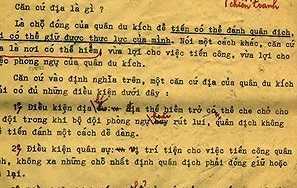 chiến tranh
Căn cứ địa là gì ?
Là chỗ đóng của quân du kích để tiến có thể đánh quân địch,
có thể giữ được thực lực của mình. Nói một cách khác, căn cứ
là nơi có thế hiểm, vừa lợi cho việc tiến công, vừa lợi cho
việc phòng ngự của quân du kích.
Căn cứ vào định nghĩa trên, một căn cứ địa của quân du kích
phải có đủ những điều kiện dưới đây :
1) Điều kiện địa thế hiểm trở có thể che chở cho
đội trong khi bộ đội phòng ngự hay rút lui, quân địch không
tiến đánh một cách dễ dàng.
2) Điều kiện quân sự: vị trí tiện cho việc tiến công quân
không xa những chỗ nhất định quân địch phải đóng giữ hoặc
lại.